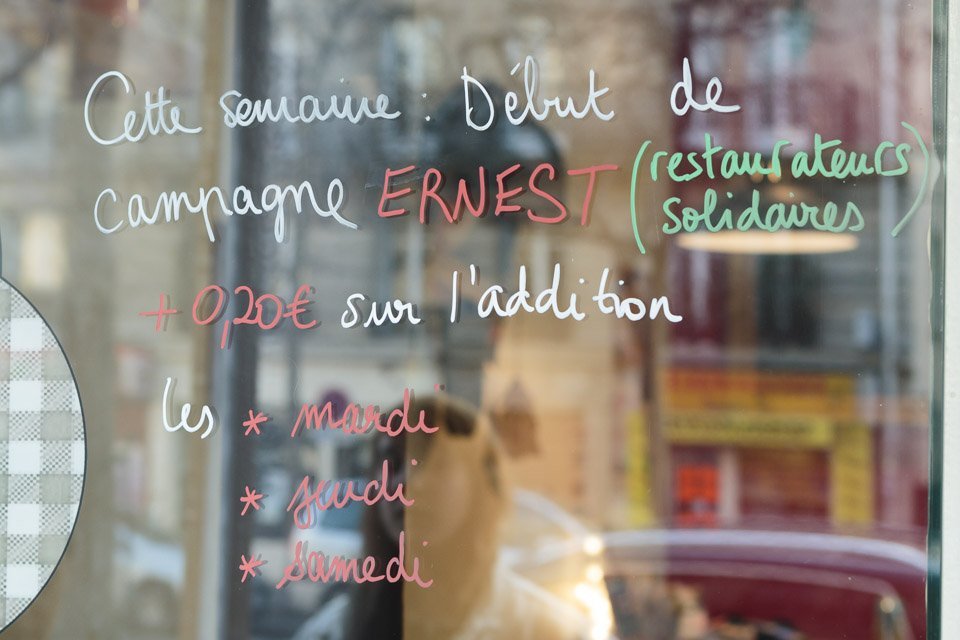 Cette semaine : Début de
campagne ERNEST (restaurateurs
solidaires)
+ 0,20€ sur l'addition
les * mardi
* jeudi
* samedi